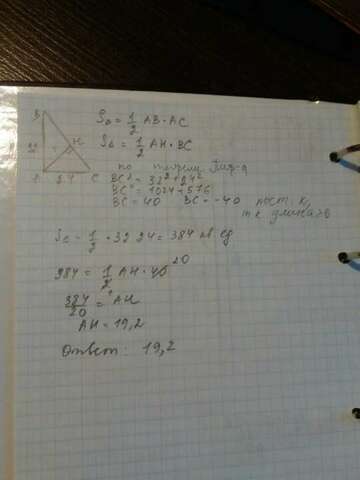 B
S△ = 1/2 AB · AC
H
S△ = 1/2 AH · BC
32
A 24 C
по теореме Пиф-а
BC² = 32² + 24²
BC² = 1024 + 576
BC = 40 BC = -40 пост. к,
т к длина >0
S△ = 1/2 · 32 · 24 = 384 кв. ед
384 = 1/2 AH · 40 20
384/20 = AH
AH = 19,2
Ответ: 19,2